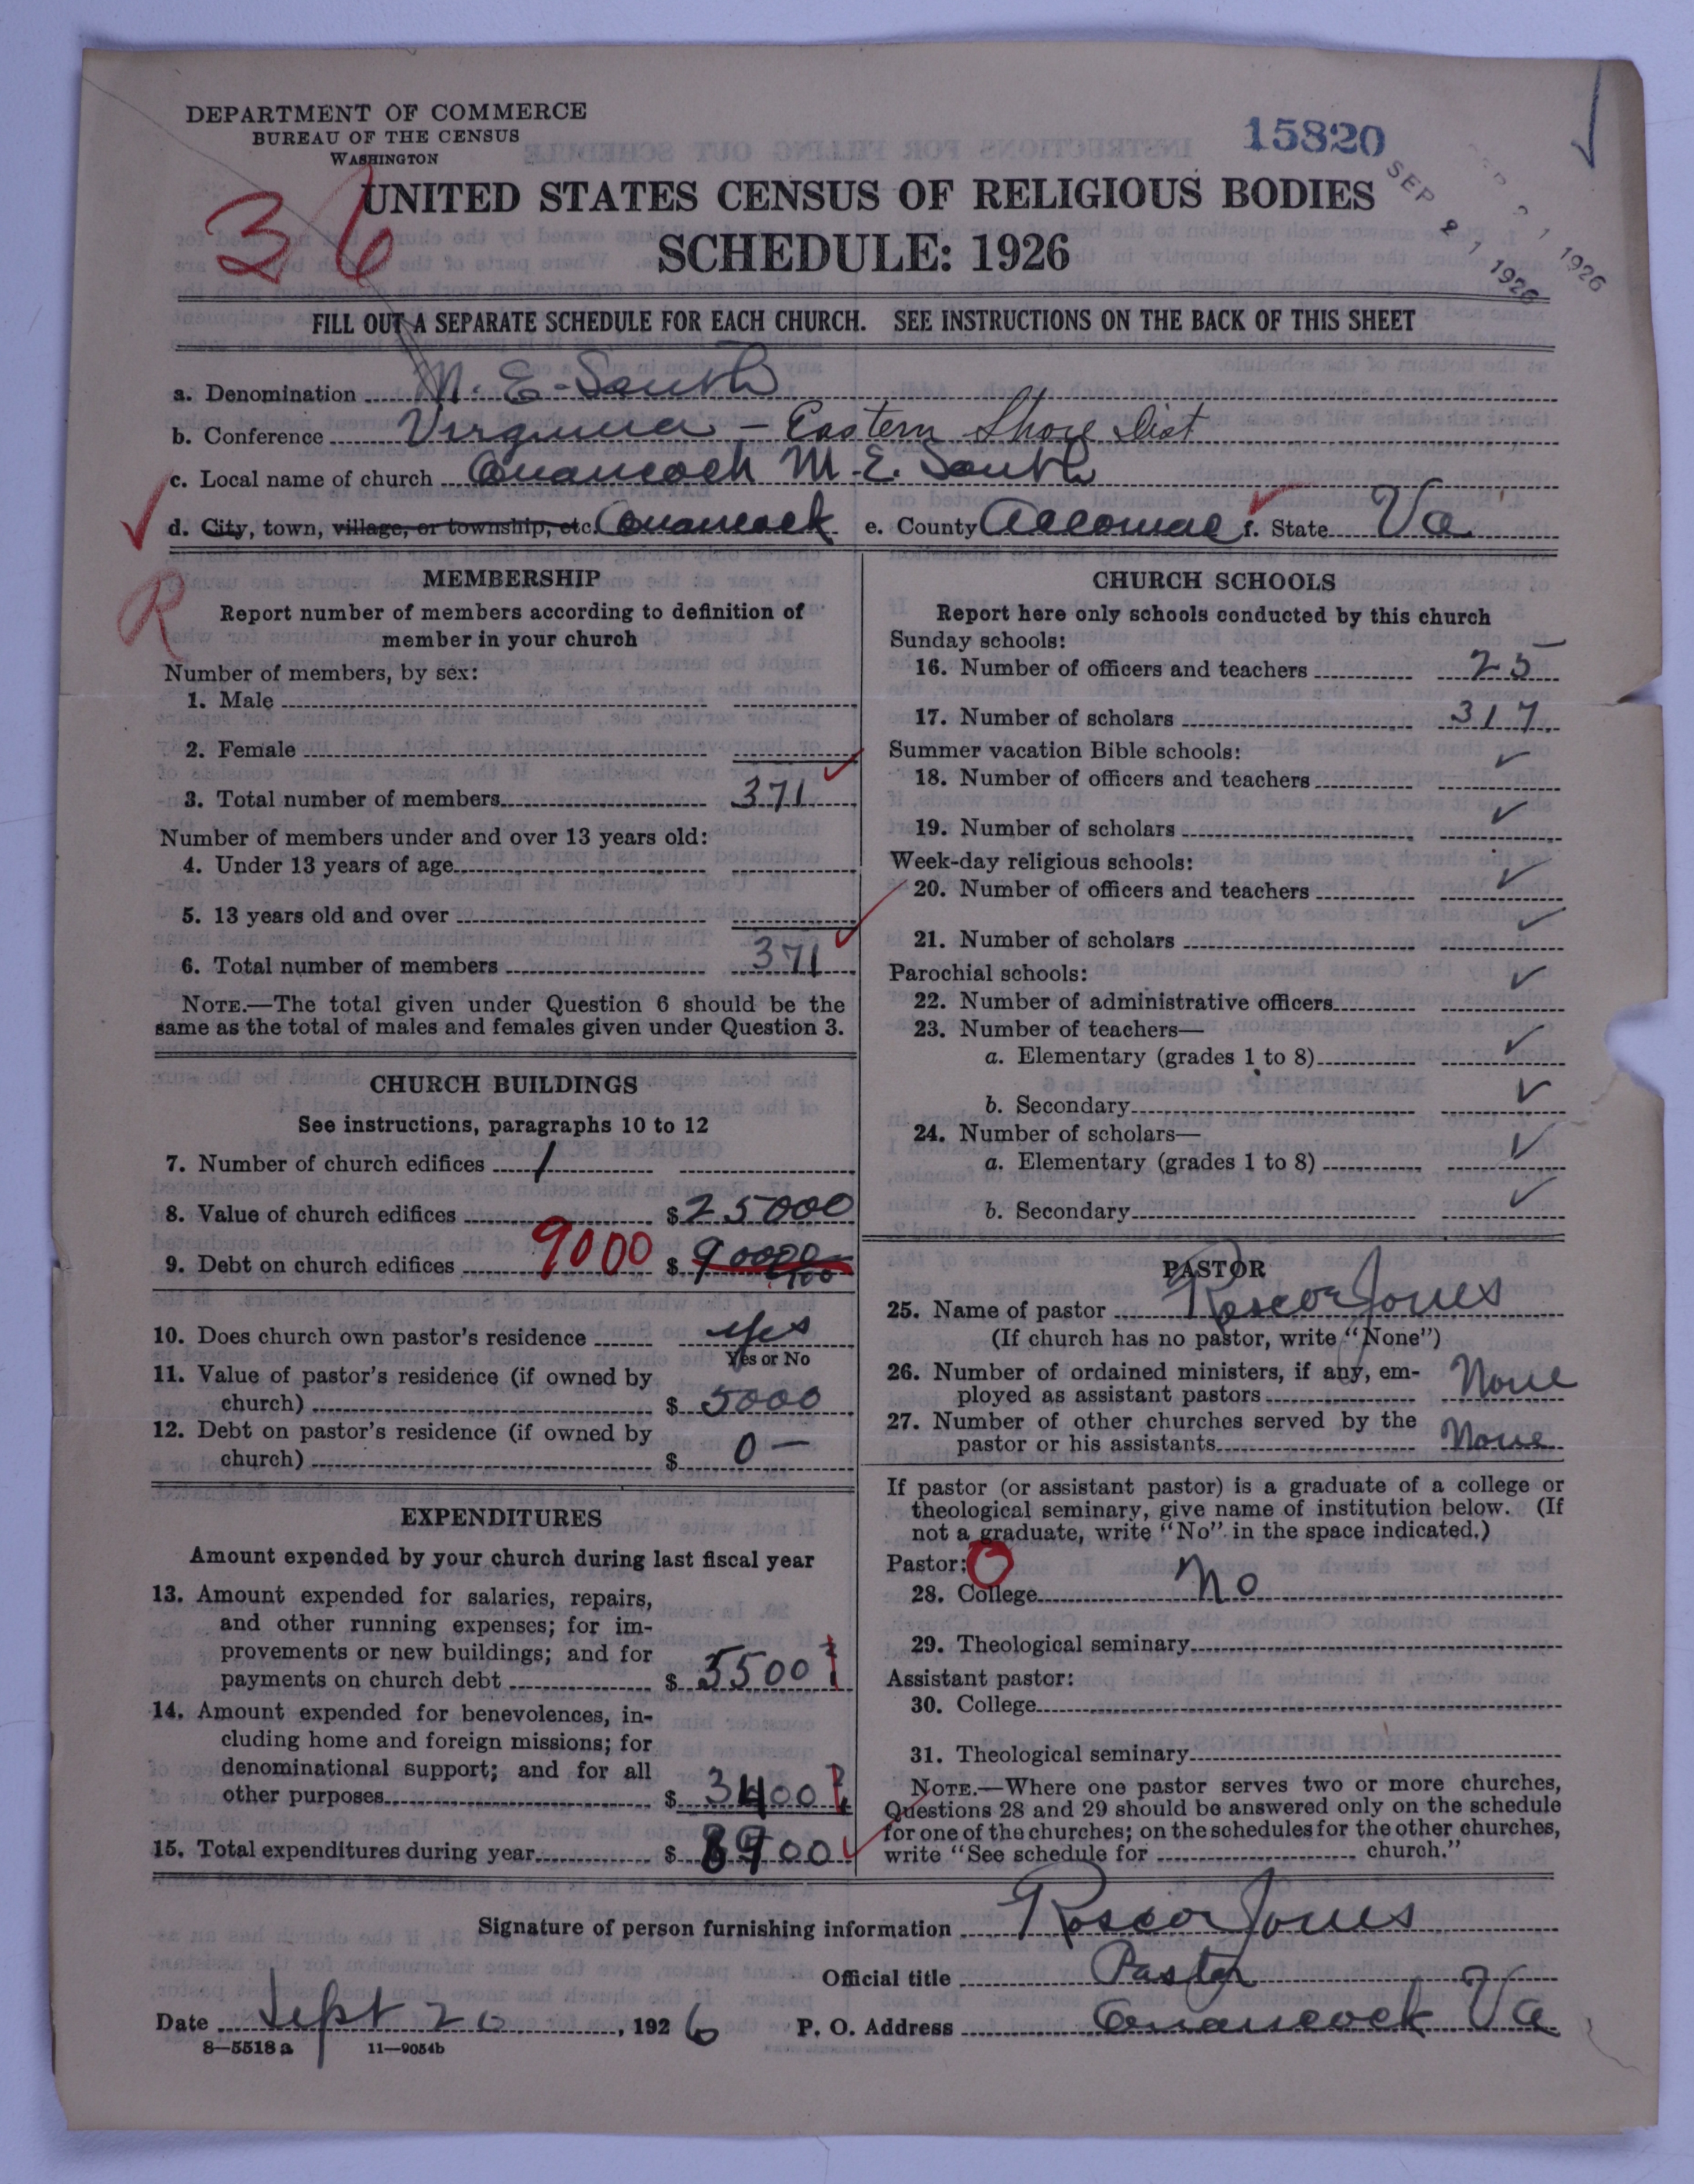 DEPARTMENT OF COMMERCE
BUREAU OF THE CENSUS
WASHINGTON
15820
SEP 21 1926
SEP 21 1926
36
UNITED STATES CENSUS OF RELIGIOUS BODIES
SCHEDULE: 1926
FILL OUT A SEPARATE SCHEDULE FOR EACH CHURCH. SEE INSTRUCTIONS ON THE BACK OF THIS SHEET
a. Denomination M. E. South
b. Conference Virginia – Eastern Shore Dist
c. Local name of church Onancock M. E. South
d. City, town, village, or township, etc. Onancock e. County Accomac f. State Va
R
MEMBERSHIP
Report number of members according to definition of
member in your church
Number of members, by sex:
1. Male
2. Female
3. Total number of members 371
Number of members under and over 13 years old:
4. Under 13 years of age
5. 13 years old and over
6. Total number of members 371
NOTE.—The total given under Question 6 should be the
same as the total of males and females given under Question 3.
CHURCH BUILDINGS
See instructions, paragraphs 10 to 12
7. Number of church edifices 1
8. Value of church edifices $ 25000
9. Debt on church edifices 9000 $
10. Does church own pastor's residence yes
Yes or No
11. Value of pastor's residence (if owned by
church) $ 5000
12. Debt on pastor's residence (if owned by
church) $ 0 —
EXPENDITURES
Amount expended by your church during last fiscal year
13. Amount expended for salaries, repairs,
and other running expenses; for im-
provements or new buildings; and for
payments on church debt $ 5500 ?
14. Amount expended for benevolences, in-
cluding home and foreign missions; for
denominational support; and for all
other purposes $ 3400 ?
15. Total expenditures during year $ 8900
CHURCH SCHOOLS
Report here only schools conducted by this church
Sunday schools:
16. Number of officers and teachers 25
17. Number of scholars 317
Summer vacation Bible schools:
18. Number of officers and teachers
19. Number of scholars
Week-day religious schools:
20. Number of officers and teachers
21. Number of scholars
Parochial schools:
22. Number of administrative officers
23. Number of teachers—
a. Elementary (grades 1 to 8)
b. Secondary
24. Number of scholars—
a. Elementary (grades 1 to 8)
b. Secondary
PASTOR
25. Name of pastor Roscoe Jones
(If church has no pastor, write "None")
26. Number of ordained ministers, if any, em-
ployed as assistant pastors None
27. Number of other churches served by the
pastor or his assistants None
If pastor (or assistant pastor) is a graduate of a college or
theological seminary, give name of institution below. (If
not a graduate, write "No" in the space indicated.)
Pastor: O
28. College No
29. Theological seminary
Assistant pastor:
30. College
31. Theological seminary
NOTE.—Where one pastor serves two or more churches,
Questions 28 and 29 should be answered only on the schedule
for one of the churches; on the schedules for the other churches,
write "See schedule for church."
Signature of person furnishing information Roscoe Jones
Official title Pastor
Date Sept 20, 1926 P. O. Address Onancock Va
8—5518 a 11—9054b